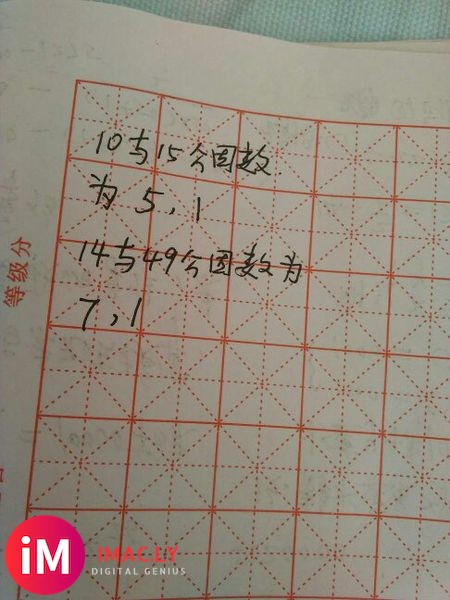 10与15公因数
为 5,1
14与49公因数为
7,1
等级分
iM IMAC.LY
DIGITAL GENIUS